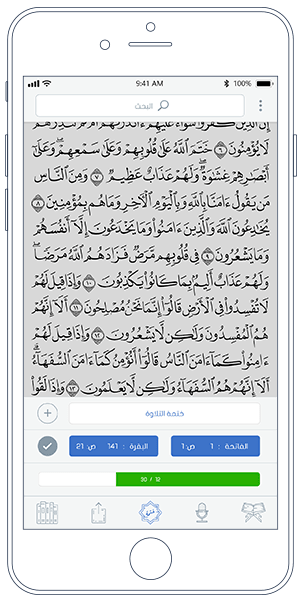 9:41 AM 100%
البحث
إِنَّ الَّذِينَ كَفَرُوا سَوَاءٌ عَلَيْهِمْ ءَأَنذَرْتَهُمْ أَمْ لَمْ تُنذِرْهُمْ
لَا يُؤْمِنُونَ ٦ خَتَمَ اللَّهُ عَلَىٰ قُلُوبِهِمْ وَعَلَىٰ سَمْعِهِمْ وَعَلَىٰ
أَبْصَارِهِمْ غِشَاوَةٌ وَلَهُمْ عَذَابٌ عَظِيمٌ ٧ وَمِنَ النَّاسِ
مَن يَقُولُ ءَامَنَّا بِاللَّهِ وَبِالْيَوْمِ الْآخِرِ وَمَا هُم بِمُؤْمِنِينَ ٨
يُخَادِعُونَ اللَّهَ وَالَّذِينَ ءَامَنُوا وَمَا يَخْدَعُونَ إِلَّا أَنفُسَهُمْ
وَمَا يَشْعُرُونَ ٩ فِي قُلُوبِهِم مَّرَضٌ فَزَادَهُمُ اللَّهُ مَرَضًا
وَلَهُمْ عَذَابٌ أَلِيمٌ بِمَا كَانُوا يَكْذِبُونَ ١٠ وَإِذَا قِيلَ لَهُمْ
لَا تُفْسِدُوا فِي الْأَرْضِ قَالُوا إِنَّمَا نَحْنُ مُصْلِحُونَ ١١ أَلَا إِنَّهُمْ
هُمُ الْمُفْسِدُونَ وَلَٰكِن لَّا يَشْعُرُونَ ١٢ وَإِذَا قِيلَ لَهُمْ
ءَامِنُوا كَمَا ءَامَنَ النَّاسُ قَالُوا أَنُؤْمِنُ كَمَا ءَامَنَ السُّفَهَاءُ
أَلَا إِنَّهُمْ هُمُ السُّفَهَاءُ وَلَٰكِن لَّا يَعْلَمُونَ ١٣ وَإِذَا لَقُوا
ختمة التلاوة
الفاتحة : 1 ص:1 البقرة : 141 ص: 21
30 / 12